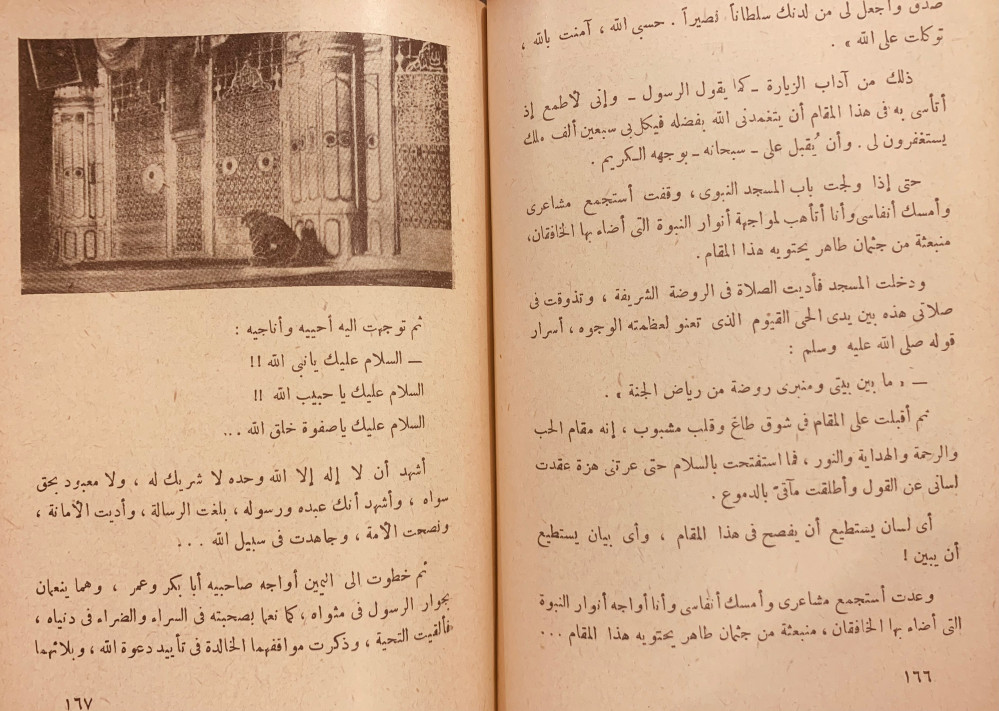 صدق واجعل لى من لدنك سلطاناً نصيراً . حسبى الله ، آمنت بالله ،
توكلت على الله » .
ذلك من آداب الزيارة ـ كما يقول الرسول ـ وإنى لأطمع إذ
أتأسى به فى هذا المقام أن يتغمدنى الله بفضله فيكل بى سبعين ألف ملك
يستغفرون لى . وأن يُقبل على ـ سبحانه ـ بوجهه الكريم .
حتى إذا ولجت باب المسجد النبوى ، وقفت أستجمع مشاعرى
وأمسك أنفاسى وأنا أتأهب لمواجهة أنوار النبوة التى أضاء بها الخافقان ،
منبعثة من جثمان طاهر يحتويه هذا المقام .
ودخلت المسجد فأديت الصلاة فى الروضة الشريفة ، وتذوقت فى
صلاتى هذه بين يدى الحى القيوم الذى تعنو لعظمته الوجوه ، أسرار
قوله صلى الله عليه وسلم :
ـ « ما بين بيتى ومنبرى روضة من رياض الجنة » .
ثم أقبلت على المقام فى شوق طاغ وقلب مشبوب ، إنه مقام الحب
والرحمة والهداية والنور ، فما استفتحت بالسلام حتى عرتنى هزة عقدت
لسانى عن القول وأطلقت مآقىّ بالدموع .
أى لسان يستطيع أن يفصح فى هذا المقام ، وأى بيان يستطيع
أن يبين !
وعدت أستجمع مشاعرى وأمسك أنفاسى وأنا أواجه أنوار النبوة
التى أضاء بها الخافقان ، منبعثة من جثمان طاهر يحتويه هذا المقام ...
١٦٦
ثم توجهت اليه أحييه وأناجيه :
ـ السلام عليك يا نبى الله !!
السلام عليك يا حبيب الله !!
السلام عليك يا صفوة خلق الله ...
أشهد أن لا إله إلا الله وحده لا شريك له ، ولا معبود بحق
سواه ، وأشهد أنك عبده ورسوله ، بلغت الرسالة ، وأديت الأمانة ،
ونصحت الأمة ، وجاهدت فى سبيل الله ...
ثم خطوت الى اليمين أواجه صاحبيه أبا بكر وعمر ، وهما ينعمان
بجوار الرسول فى مثواه ، كما نعما بصحبته فى السراء والضراء فى دنياه ،
فألقيت التحية ، وذكرت مواقفهما الخالدة فى تأييد دعوة الله ، وبلائهما
١٦٧